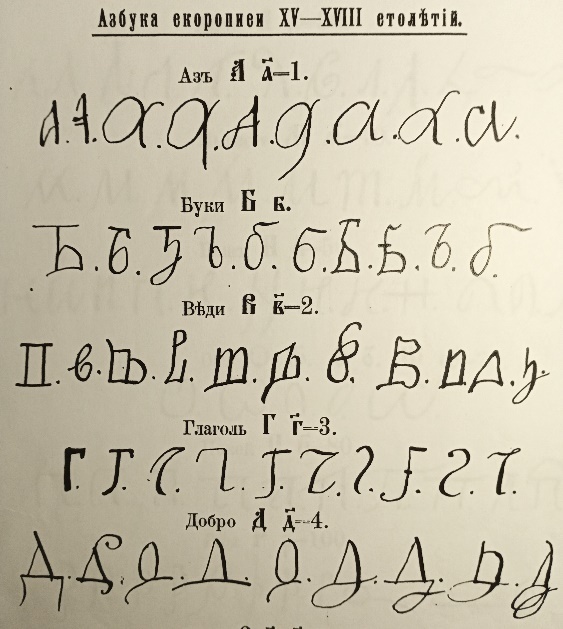 Азбука скорописи XV—XVIII столѣтій.
Азъ А а҃=1.
А. А. А. А. А. А. А. А. А.
Буки Б б.
Б. Б. Б. Б. Б. Б. Б. Б. Б. Б.
Вѣди В в҃=2.
В. В. В. В. В. В. В. В. В. В. В.
Глаголь Г г҃=3.
Г. Г. Г. Г. Г. Г. Г. Г. Г. Г.
Добро Д д҃=4.
Д. Д. Д. Д. Д. Д. Д. Д. Д.